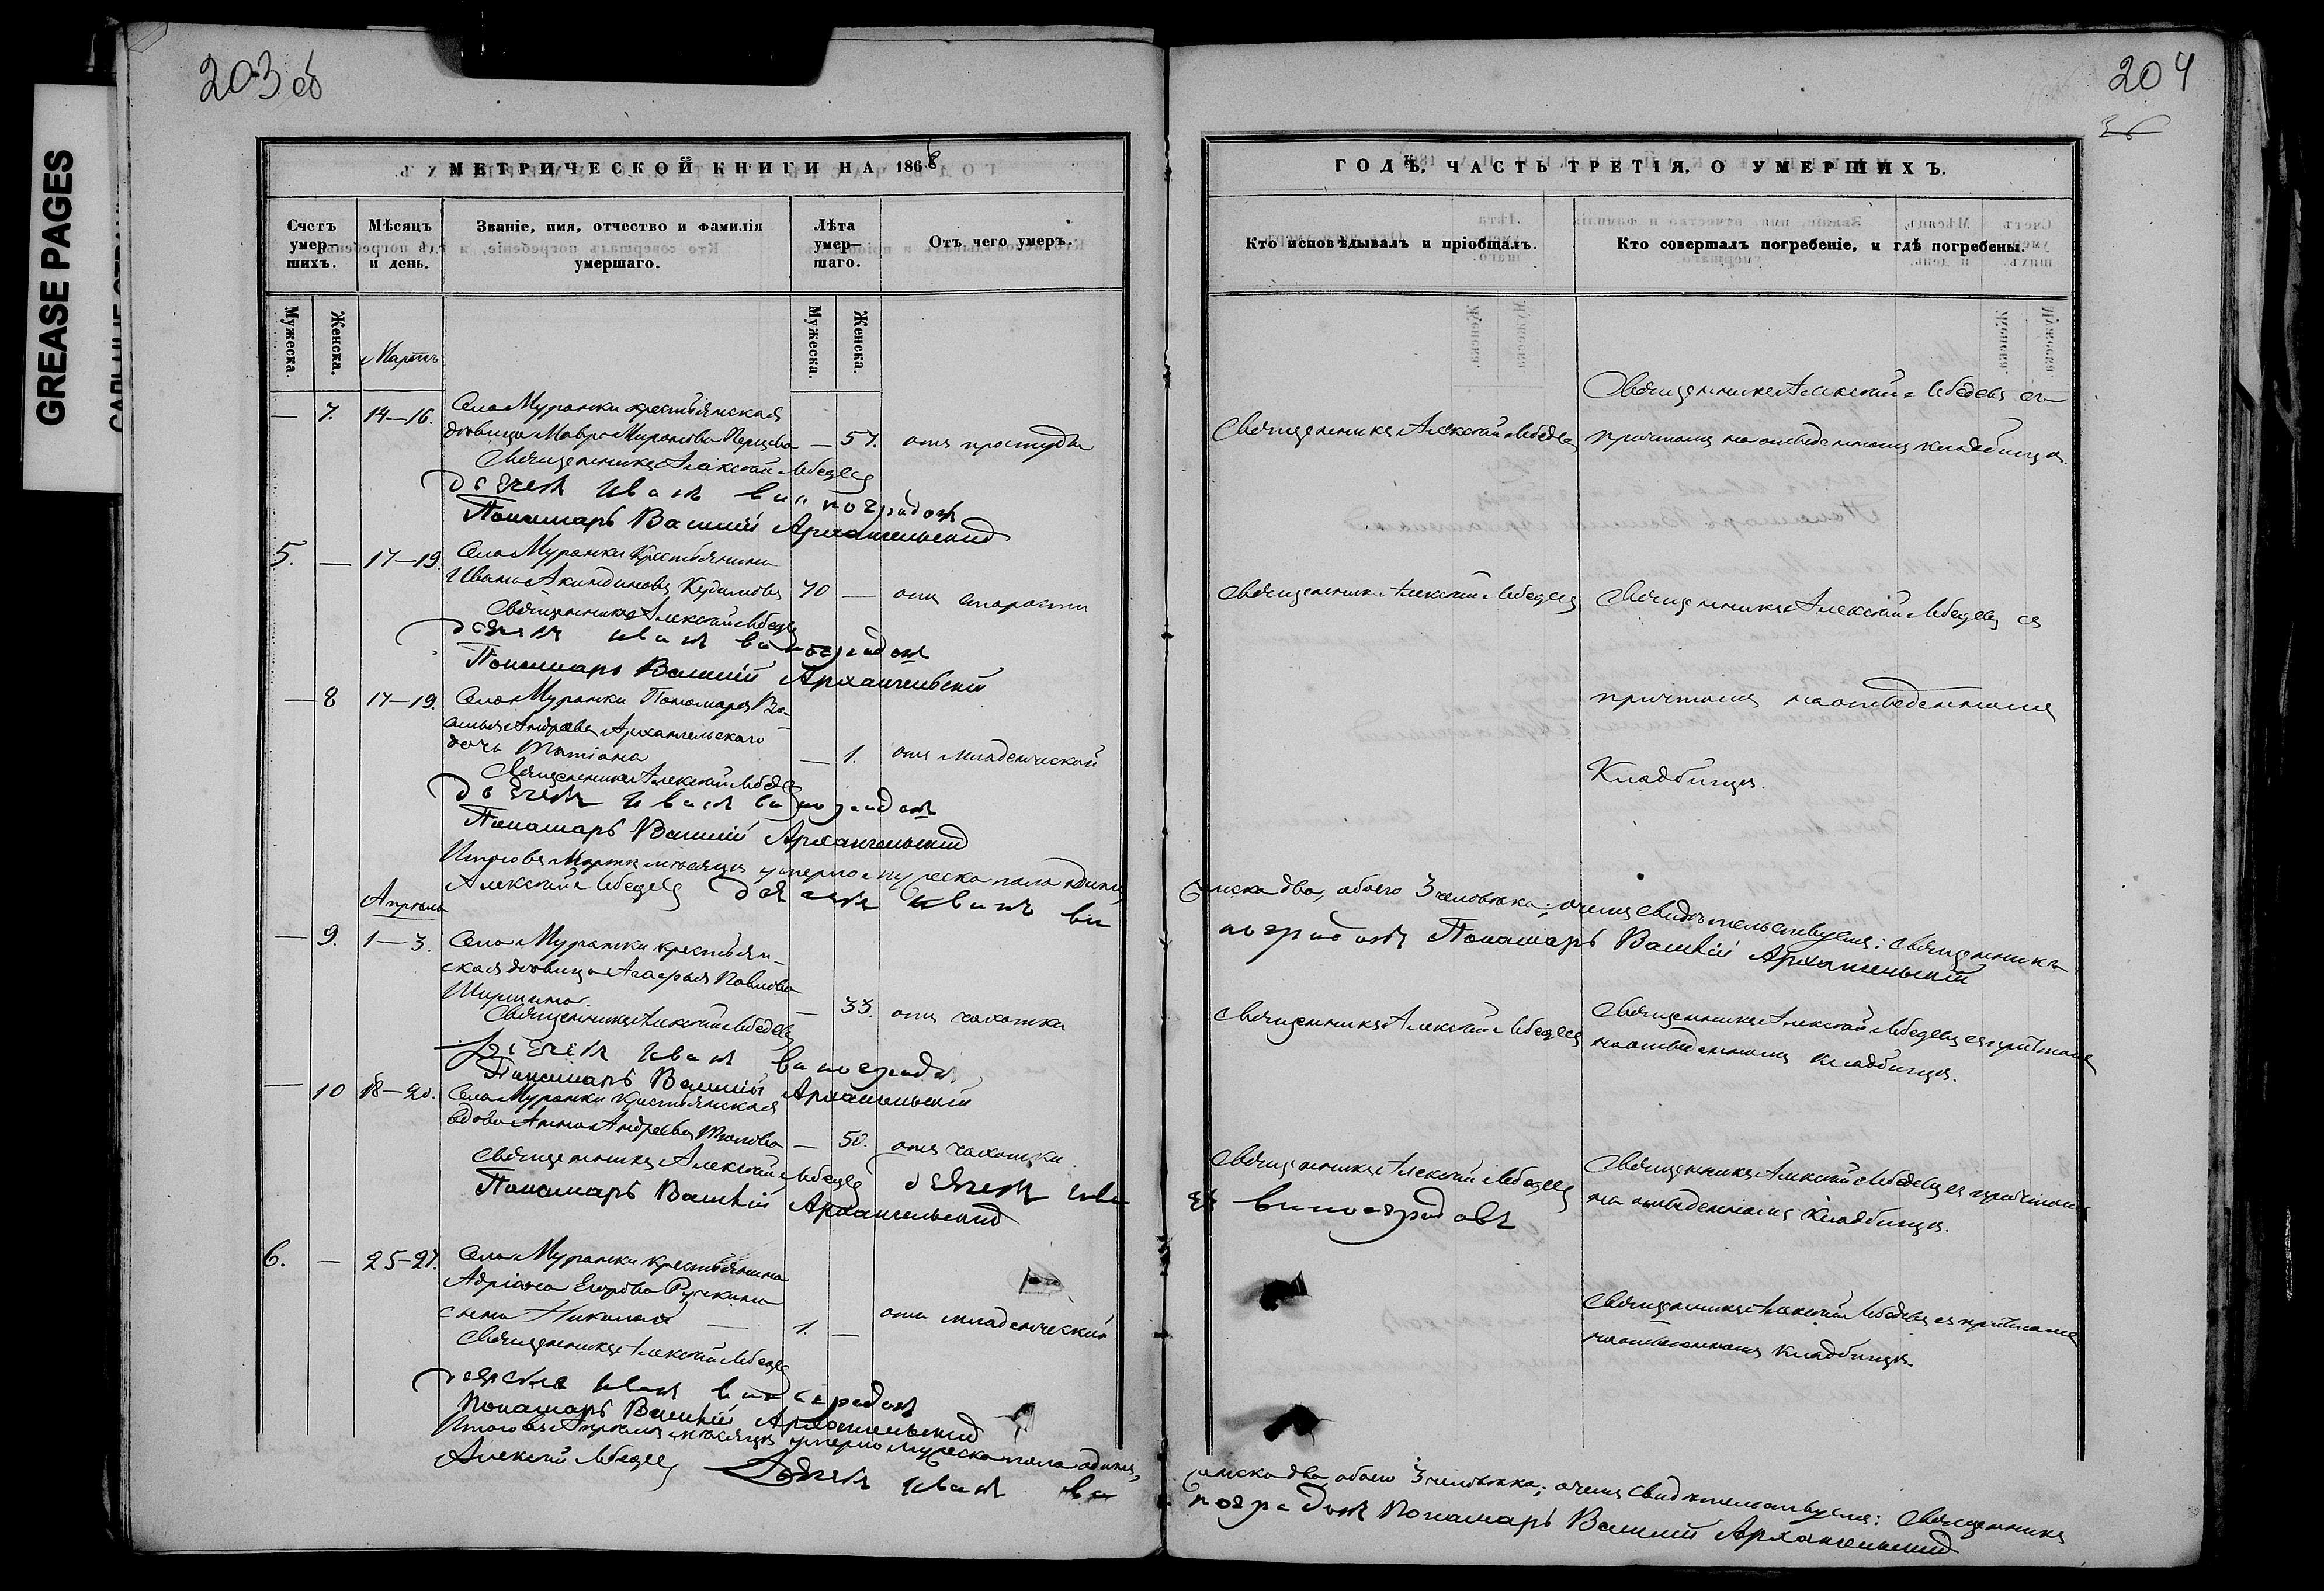 GREASE PAGES
203 об
МЕТРИЧЕСКОЙ КНИГИ НА 1868
Счетъ умер-шихъ.
Мѣсяцъ и день.
Званіе, имя, отчество и фамилія умершаго.
Лѣта умер-шаго.
Отъ чего умеръ.
Мужеска.
Женска.
Мужеска.
Женска.
Мартъ
— 7. 14—16. Села Муранки крестьянская
дѣвица Мавра Миронова — 57. отъ простуды
Священникъ Алексѣй Лебедевъ
Дьячекъ Иванъ Виноградовъ
Пономарь Василій Архангельскій
5. — 17—19. Села Муранки крестьянинъ
Иванъ Акиндиновъ 70 — отъ старости
Священникъ Алексѣй Лебедевъ
Дьячекъ Иванъ Виноградовъ
Пономарь Василій Архангельскій
— 8 17—19. Села Муранки Пономаря Ва-
силья Андреева Архангельскаго
дочь Татіана — 1. отъ младенческой
Священникъ Алексѣй Лебедевъ
Дьячекъ Иванъ Виноградовъ
Пономарь Василій Архангельскій
Итого въ Мартѣ мѣсяцѣ умерло мужеска пола одинъ,
Алексѣй Лебедевъ Дьячекъ Иванъ Ви
Апрѣль
— 9. 1—3. Села Муранки крестьян-
ская дѣвица Агафья Павлова
— 33. отъ чахотки
Священникъ Алексѣй Лебедевъ
Дьячекъ Иванъ Виноградовъ
Пономарь Василій Архангельскій
— 10 18—20. Села Муранки крестьянская
вдова Анна Андреева — 50. отъ чахотки.
Священникъ Алексѣй Лебедевъ Дьячекъ Ива
Пономарь Василій Архангельскій
6. — 25—27. Села Муранки крестьянина
Адріана Егорова
сынъ Николай — 1. — отъ младенческой
Священникъ Алексѣй Лебедевъ
Дьячекъ Иванъ Виноградовъ
Пономарь Василій Архангельскій
Итого въ Апрѣлѣ мѣсяцѣ умерло мужеска пола одинъ,
Алексѣй Лебедевъ Дьячекъ Иванъ Ви
204
ГОДЪ, ЧАСТЬ ТРЕТІЯ, О УМЕРШИХЪ.
Кто исповѣдывалъ и пріобщалъ.
Кто совершалъ погребеніе, и гдѣ погребены.
Священникъ Алексѣй Лебедевъ съ
Священникъ Алексѣй Лебедевъ причтомъ на отведенномъ кладбищѣ.
Священникъ Алексѣй Лебедевъ Священникъ Алексѣй Лебедевъ съ
причтомъ на отведенномъ
Кладбищѣ.
женска два, обоего 3 человѣка; о чемъ свидѣтельствуемъ: Священникъ
ноградовъ Пономарь Василій Архангельскій
Священникъ Алексѣй Лебедевъ Священникъ Алексѣй Лебедевъ съ причтомъ
на отведенномъ кладбищѣ.
Священникъ Алексѣй Лебедевъ Священникъ Алексѣй Лебедевъ съ причтомъ
нъ Виноградовъ на отведенномъ кладбищѣ.
Священникъ Алексѣй Лебедевъ съ причтомъ
на отведенномъ кладбищѣ.
женска два, обоего 3 человѣка; о чемъ свидѣтельствуемъ: Священникъ
ноградовъ Пономарь Василій Архангельскій